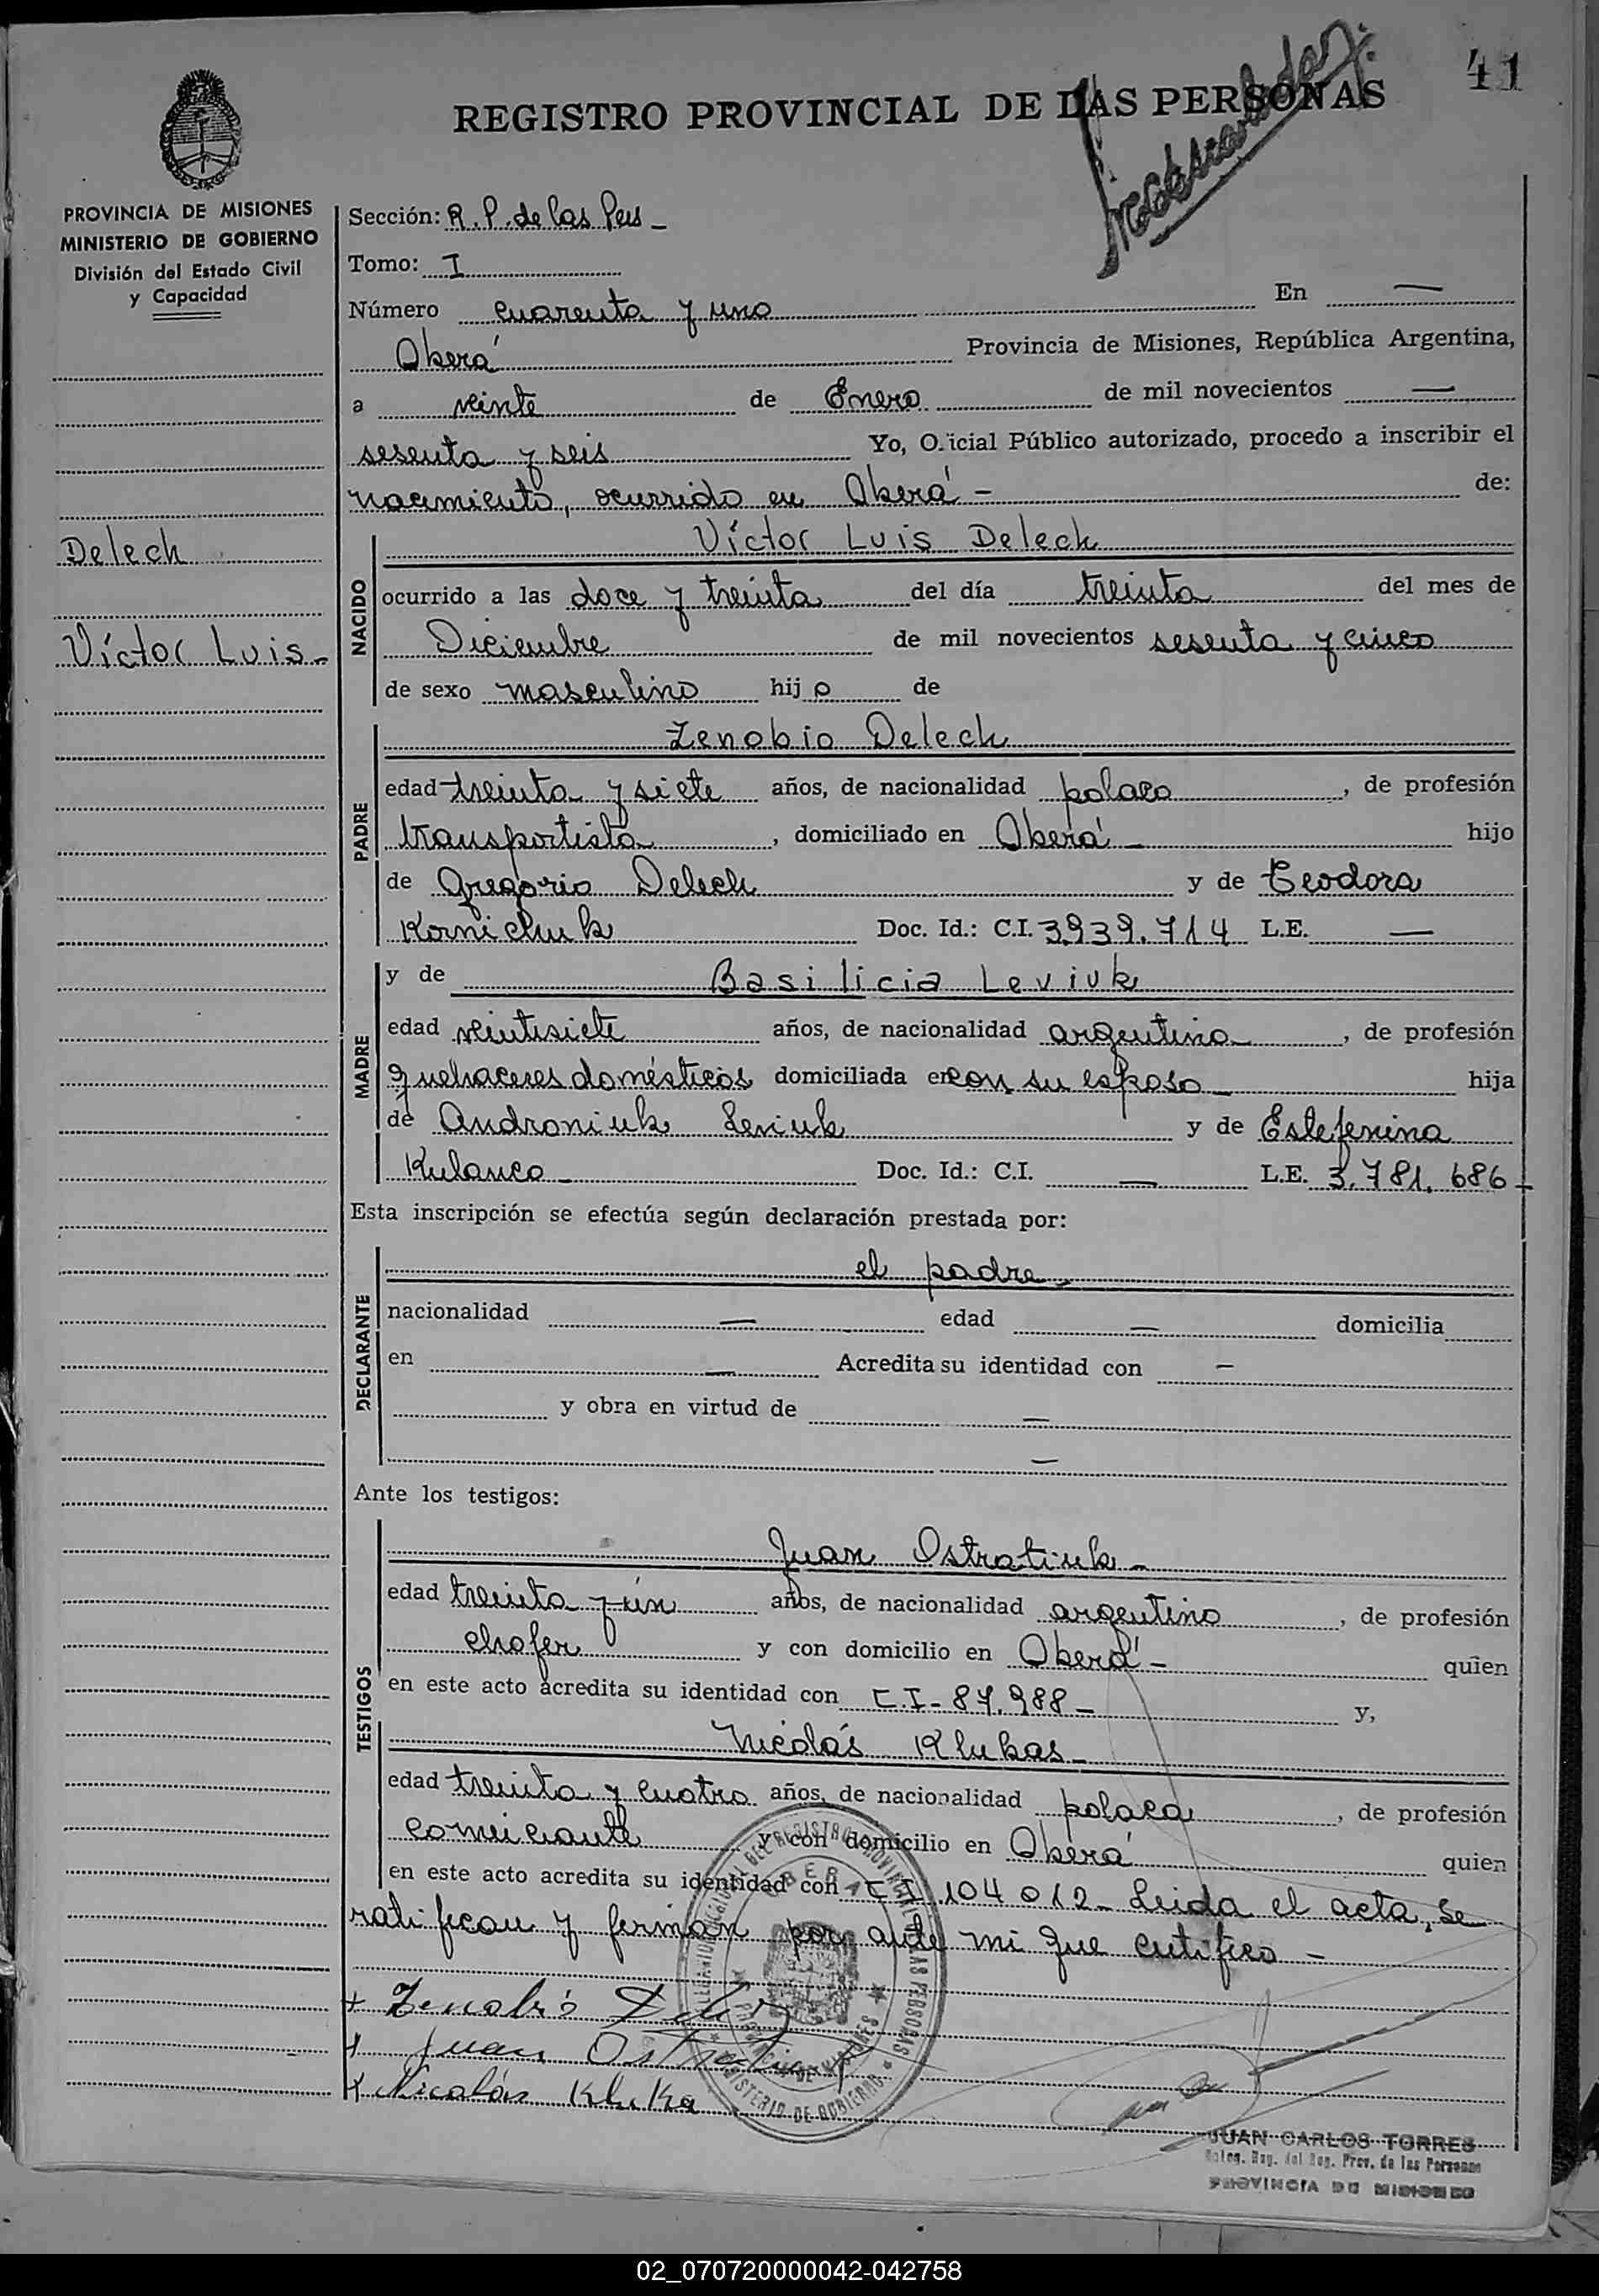 41
REGISTRO PROVINCIAL DE LAS PERSONAS
PROVINCIA DE MISIONES
MINISTERIO DE GOBIERNO
División del Estado Civil
y Capacidad
Delech
Víctor Luis -
Sección: R. P. de las Pers -
Tomo: I
Número cuarenta y uno En —
Oberá Provincia de Misiones, República Argentina,
a veinte de Enero de mil novecientos —
sesenta y seis Yo, Oficial Público autorizado, procedo a inscribir el
nacimiento, ocurrido en Oberá - de:
NACIDO
Víctor Luis Delech
ocurrido a las doce y treinta del día treinta del mes de
Diciembre de mil novecientos sesenta y cinco
de sexo masculino hijo de
PADRE
Zenobio Delech
edad treinta y siete años, de nacionalidad polaco, de profesión
transportista, domiciliado en Oberá - hijo
de Gregorio Delech y de Teodora
Kornichuk Doc. Id.: C.I. 3.939.714 L.E. —
MADRE
y de Basilicia Leviuk
edad veintisiete años, de nacionalidad argentina, de profesión
quehaceres domésticos domiciliada en con su esposo - hija
de Androniuk Leviuk y de Estefenina
Kulanco - Doc. Id.: C.I. — L.E. 3.781.686 -
Esta inscripción se efectúa según declaración prestada por:
DECLARANTE
el padre -
nacionalidad — edad — domicilia
en — Acredita su identidad con —
y obra en virtud de —
—
Ante los testigos:
TESTIGOS
Juan Ostratiuk -
edad treinta y un años, de nacionalidad argentino, de profesión
chofer y con domicilio en Oberá - quien
en este acto acredita su identidad con C.I - 87.988 - y,
Nicolás Klukas -
edad treinta y cuatro años, de nacionalidad polaca, de profesión
comerciante y con domicilio en Oberá quien
en este acto acredita su identidad con C I 104 012 - Leida el acta, se
ratifican y firman por ante mi que certifico -
+ Zenobio
+ Juan Ostratiuk
+ Nicolás Kluka
JUAN CARLOS TORRES
Deleg. Reg. del Reg. Prov. de las Personas
PROVINCIA DE MISIONES
02_070720000042-042758